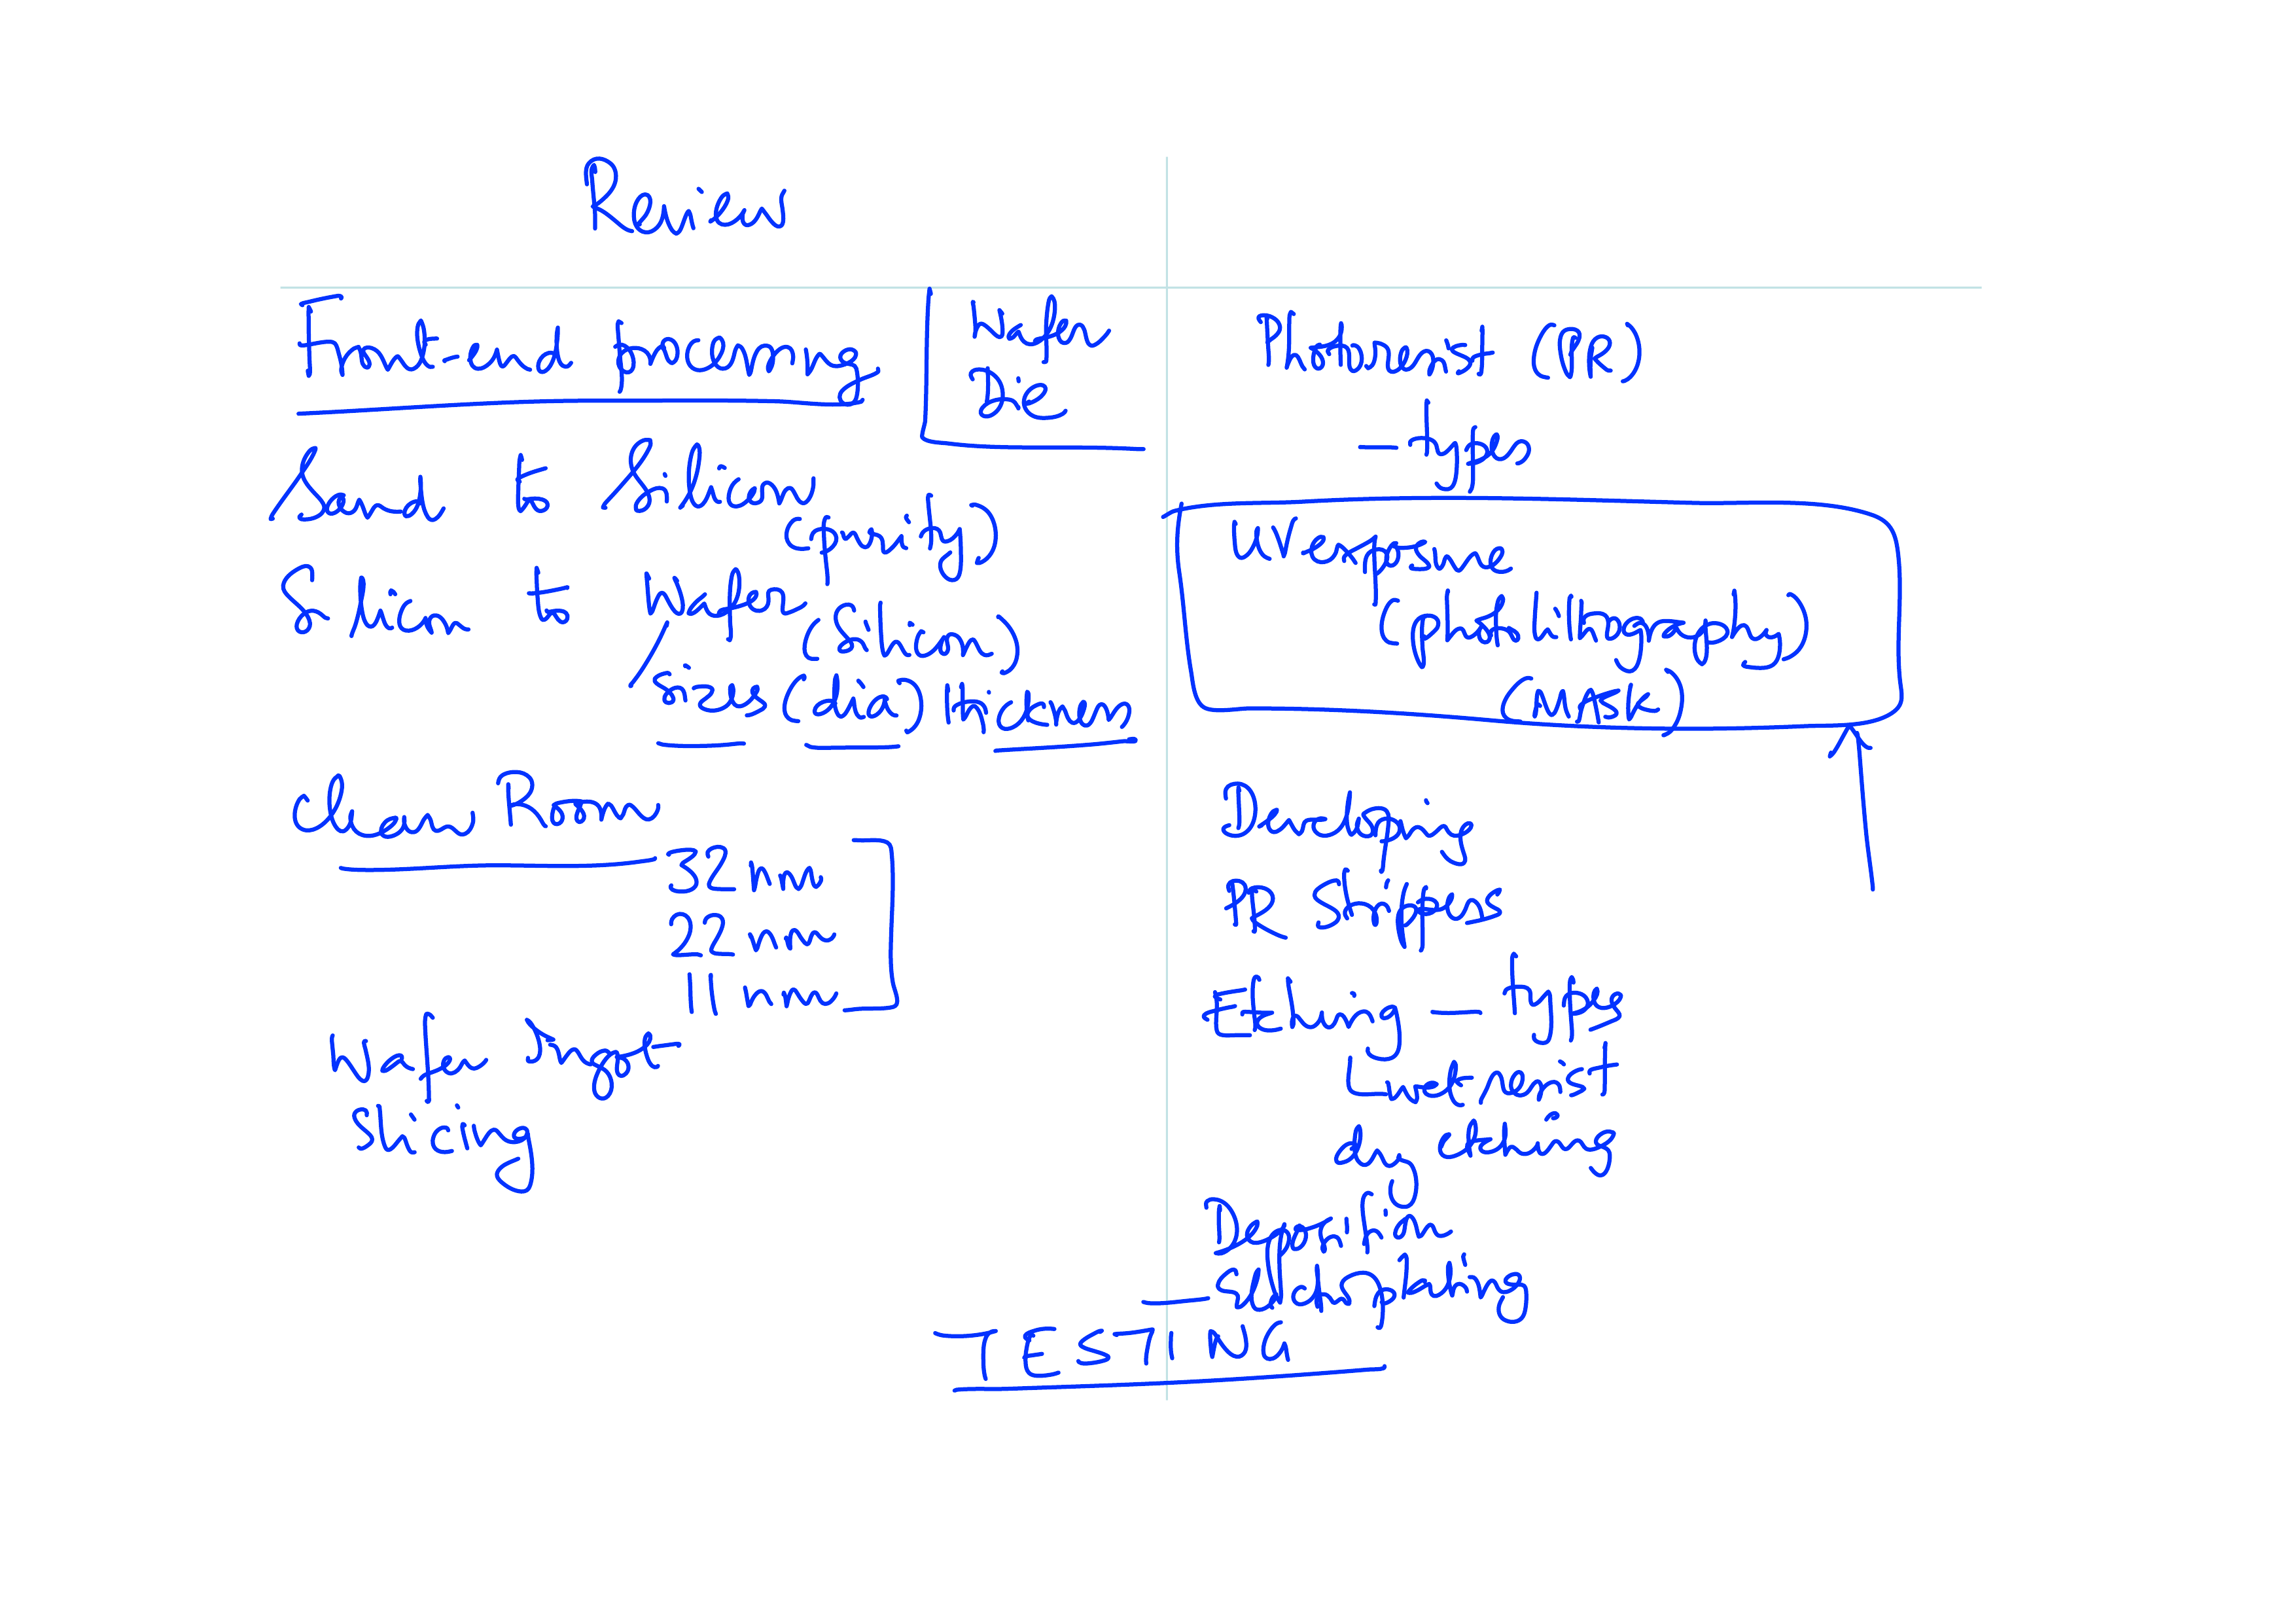 Review
Front-end processing
Wafer
Die
Sand to Silicon
(purity)
Silicon to Wafer
(Silicon)
Sizes (dia) thickness
Clean Room
32 nm
22 nm
11 nm
Wafer Ingot
Slicing
Photoresist (PR)
- types
UV exposure
(photolithography)
(MASK)
Developing
PR Strippers
Etching - types
wet resist
dry etching
Deposition
- electroplating
TESTING